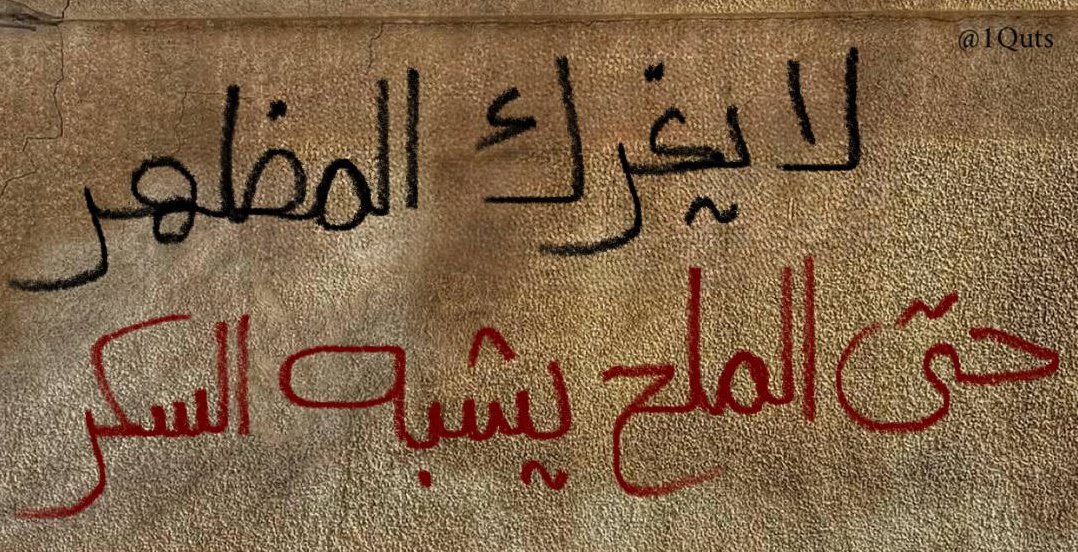 @1Quts
لا يغرك المظهر
حتى الملح يشبه السكر